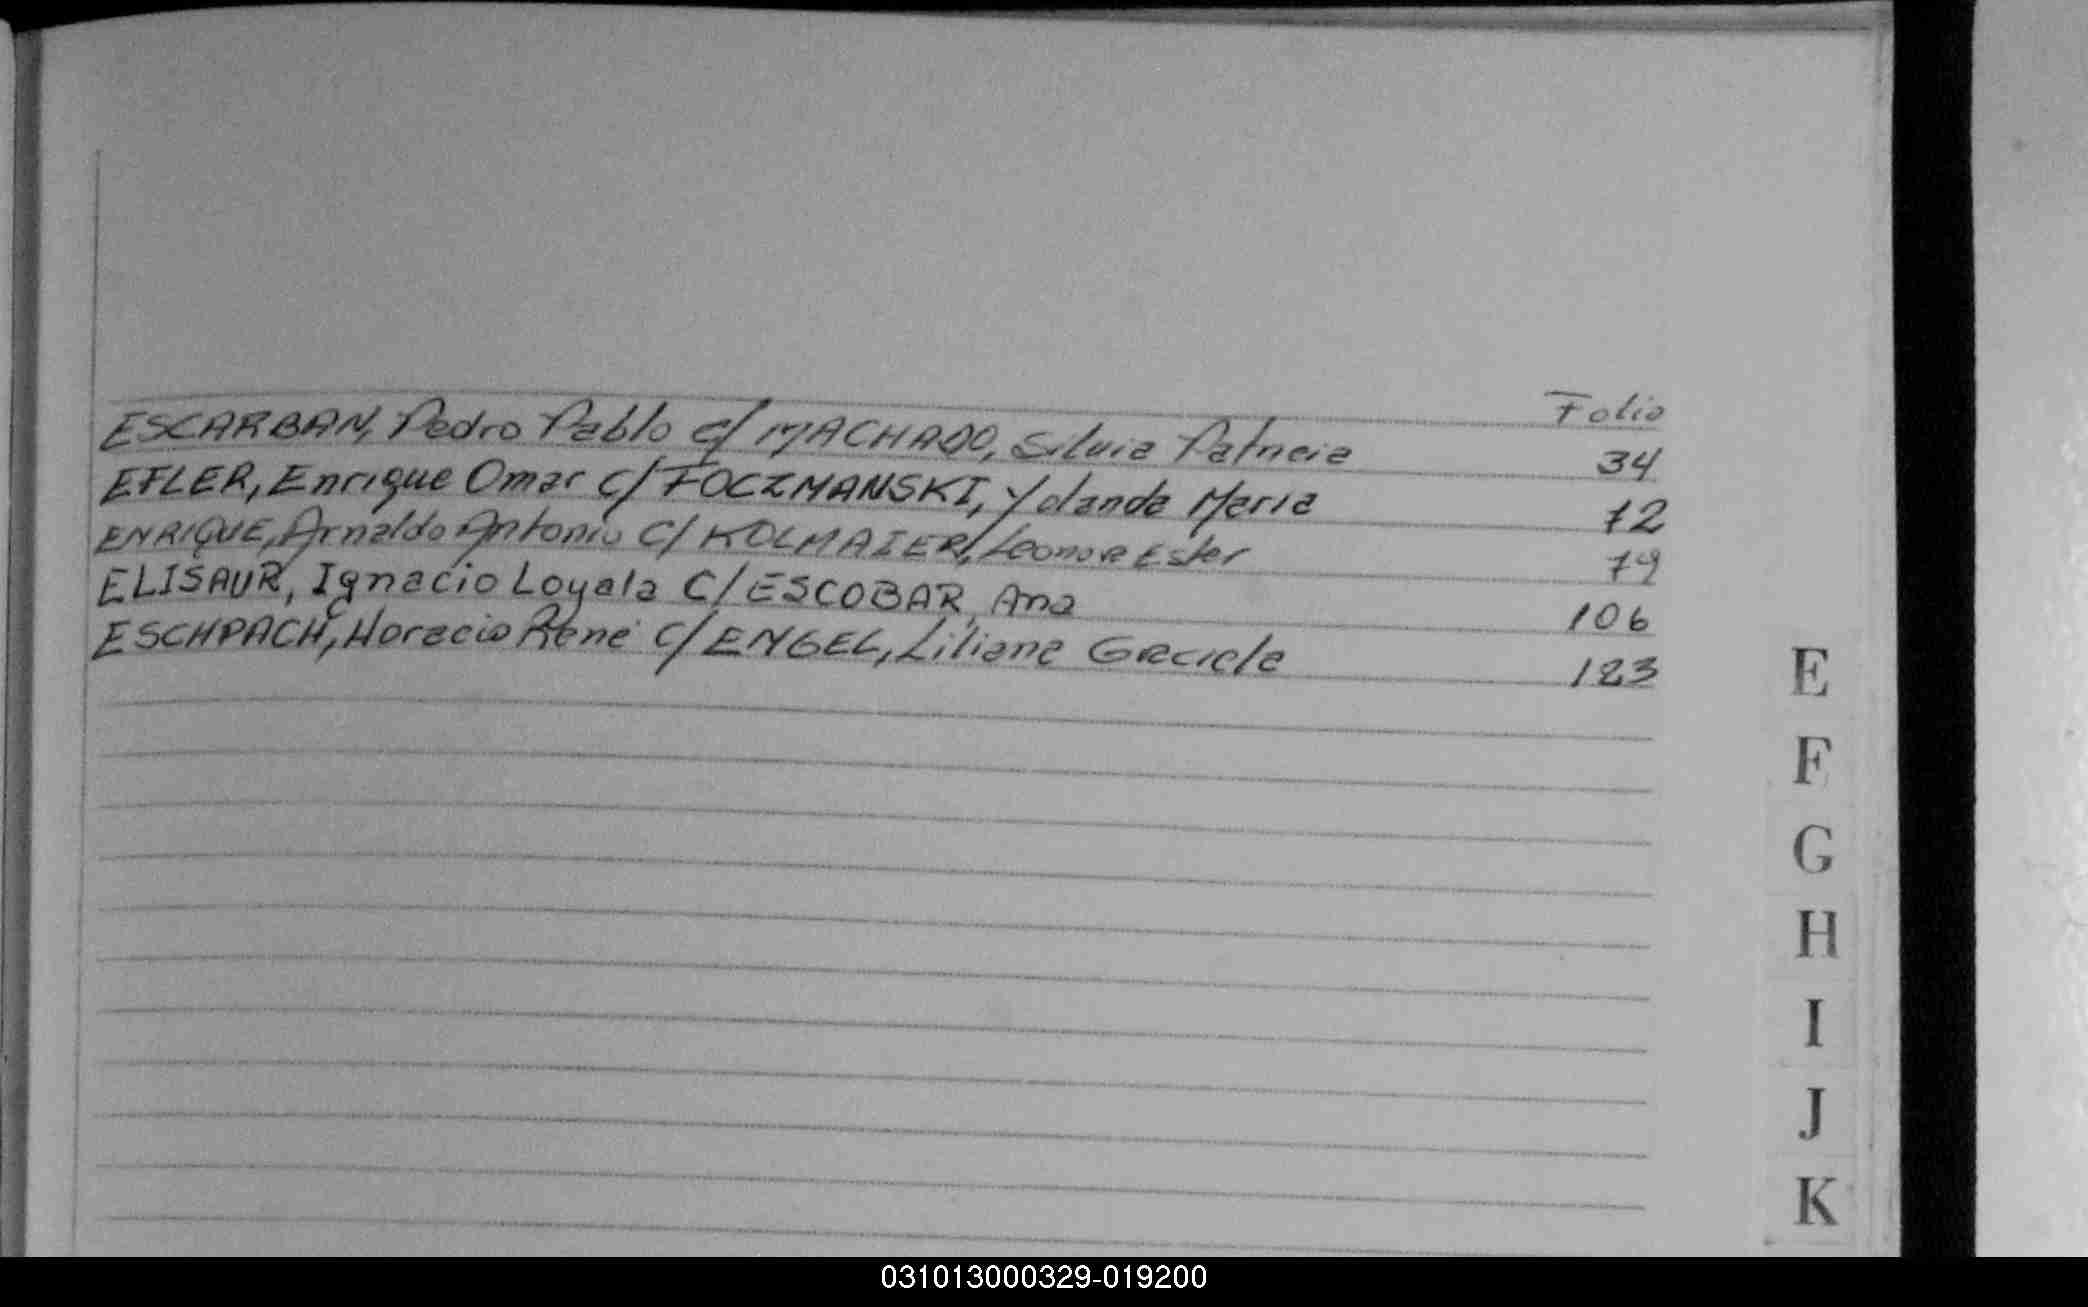 Folio
ESCARBAN, Pedro Pablo c/ MACHADO, Silvia Patricia 34
EFLER, Enrique Omar c/ FOCZMANSKI, Yolanda Maria 72
ENRIQUE, Arnaldo Antonio C/ KOLMAIER, Leonor Ester 79
ELISAUR, Ignacio Loyala C/ ESCOBAR, Ana 106
ESCHPACH, Horacio René c/ ENGEL, Liliana Graciela 123
E
F
G
H
I
J
K
031013000329-019200